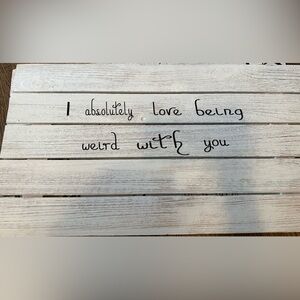 I absolutely love being
weird with you